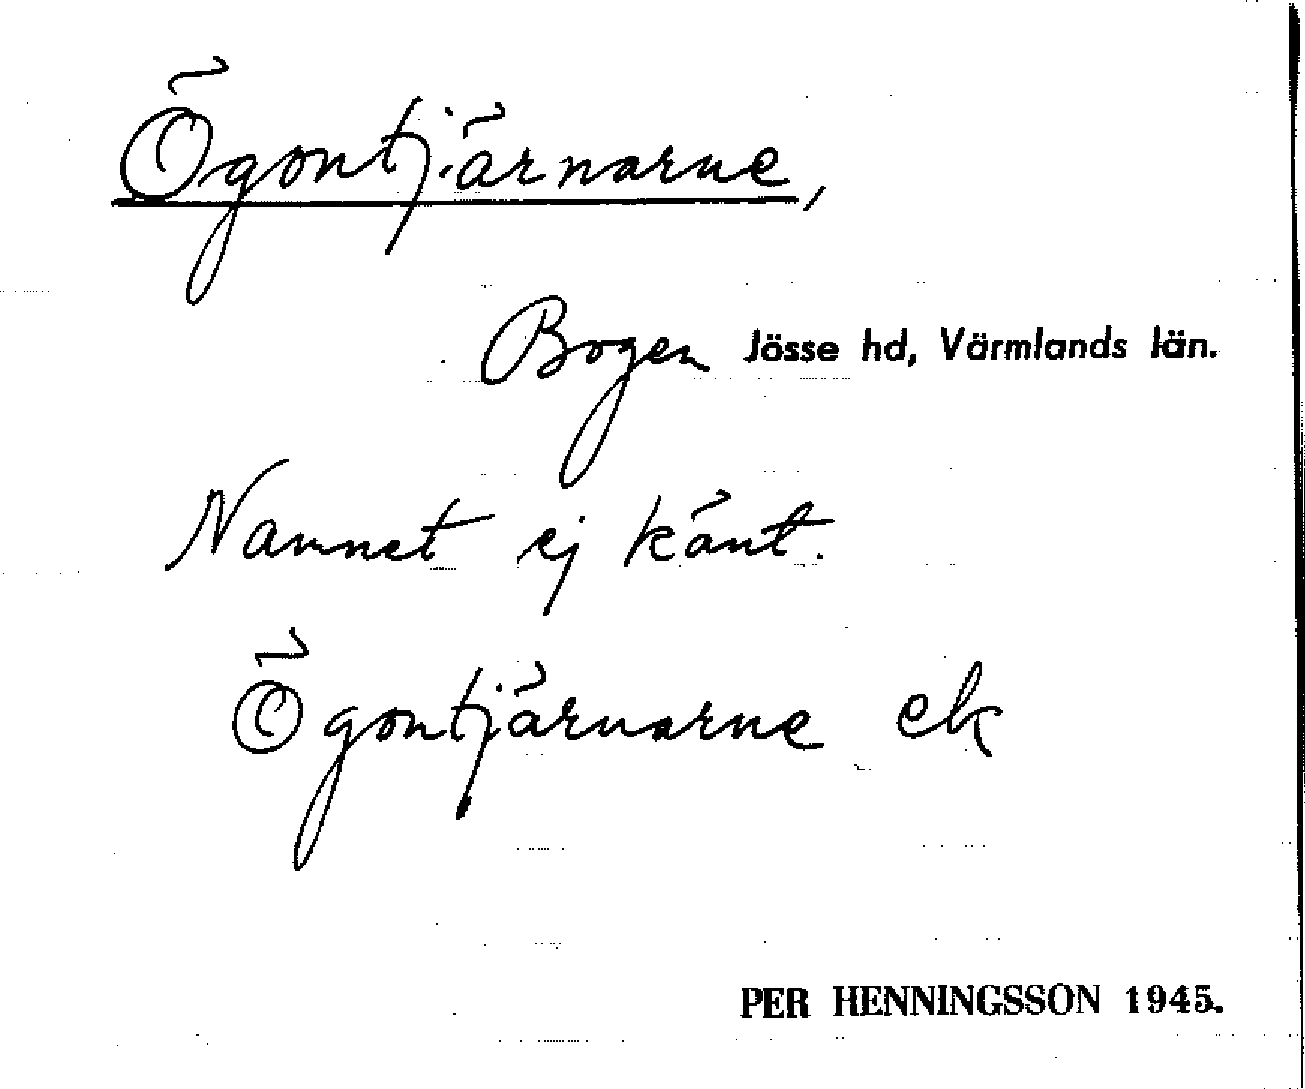 Ögontjärnarne,
Bogen Jösse hd, Värmlands län.
Namnet ej känt.
Ögontjärnarne ek
PER HENNINGSSON 1945.